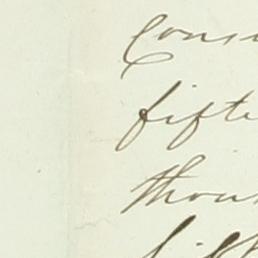 Consi
fifte
thou